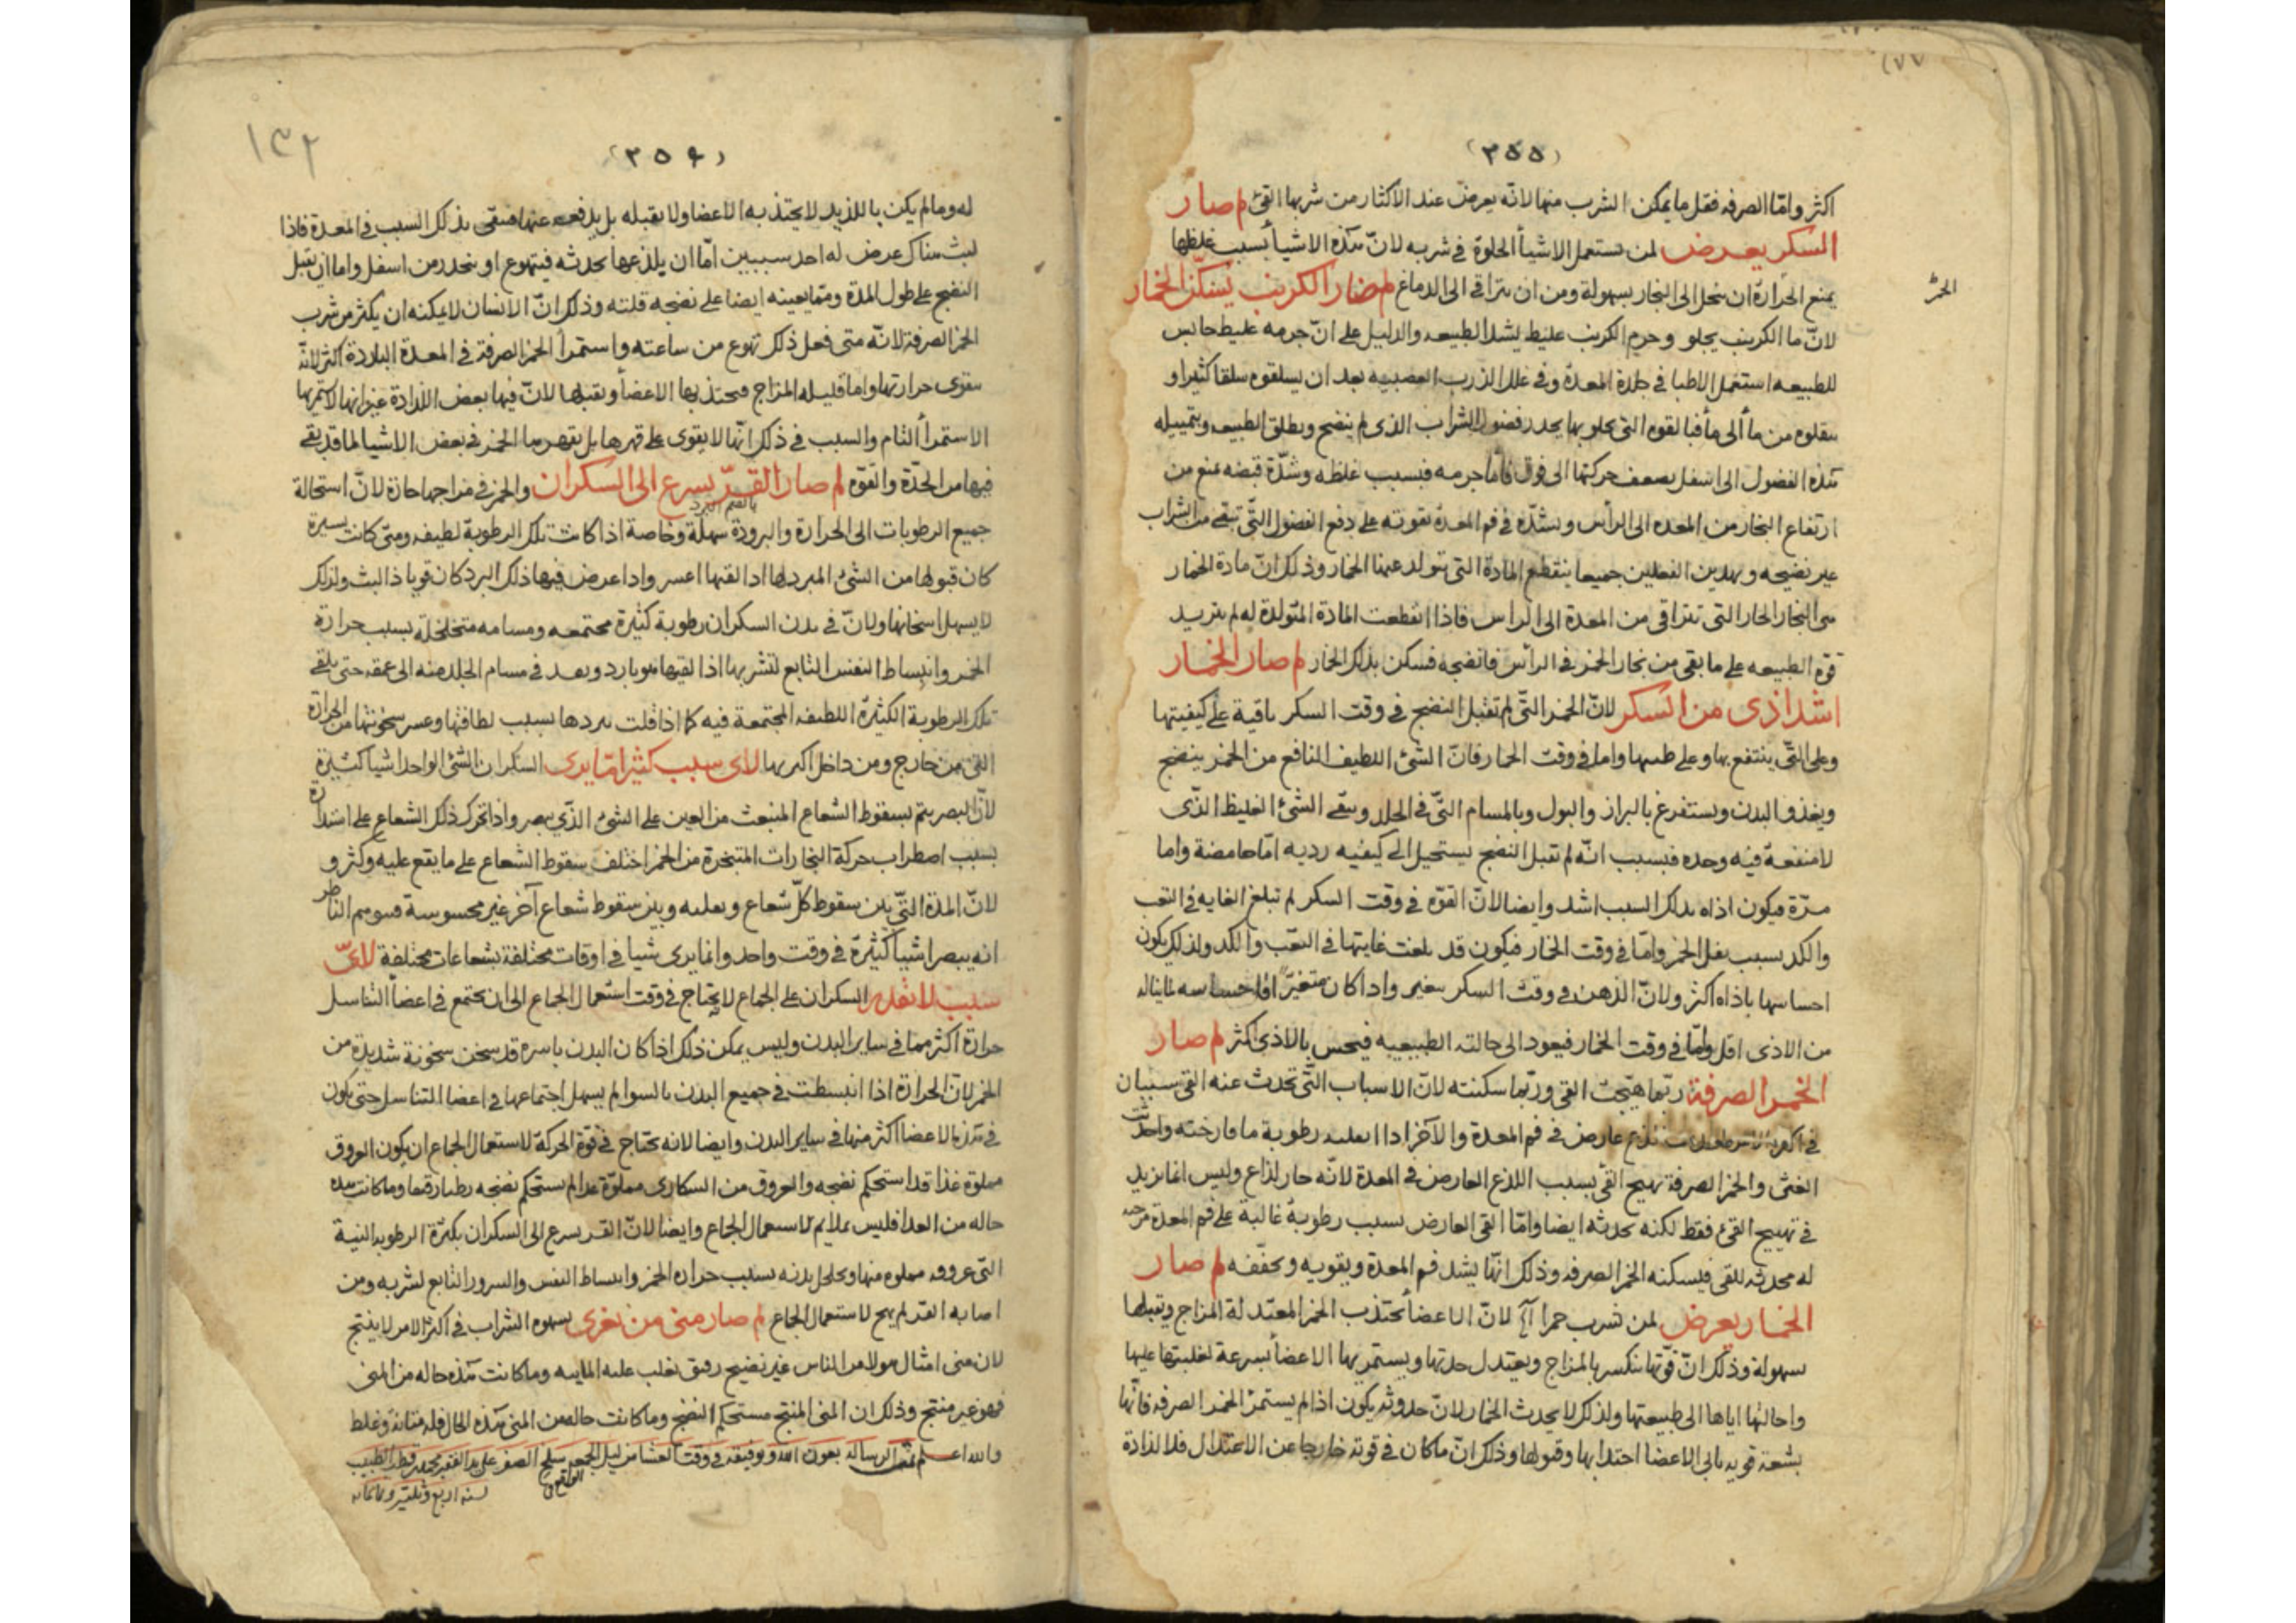 (٣٥٥)
اكثر وامّا الصرفه فقل ما يمكن الشرب منها لانّه يعرض عند الاكثار من شربها القئ لم صار
السكر يعرض لمن يستعمل الاشيأ الحلوة في شربه لانّ هذه الاشيأ بسبب غلظها
يمنع الحرارة ان تنحل الى البخار بسهولة ومن ان تتراقى الى الدماغ لم صار الكرنب يسكّن الخمار
لانّ ما الكرنب يجلو وجرم الكرنب غليظ يشد الطبيعه والدليل على انّ جرمه غليظ حابس
للطبيعه استعمل الاطبا في المعدة وفي علل الذرب بعد ان يسلقوه سلقا كثيرا و
ينقلوه من مأ الى مأ فبالقوه التي يجلو بها يحدر فضول الشراب الذى لم ينضج ويطلق الطبيعه وبتمييله
هذه الفضول الى اسفل يضعف حركتها الى فوق فأما جرمه فبسبب غلظه وشدّة قبضه يمنع من
ارتفاع البخار من المعده الى الرأس ويشدّه في فم المعدة بقوته على دفع الفضول التّي تبقى من الشراب
غير نضيجه وبهذين الفعلين جميعا ينقطع المادة التي يتولد عنها الخمار وذلك انّ مادة الخمار
هى البخار الحار التى تتراقى من المعدة الى الراس فاذا انقطعت المادة المتولدة له لم يتزيد
قوة الطبيعه على ما بقى من بخار الخمر في الرأس فانضجه فسكن بذلك الخمار لم صار الخمار
اشد اذى من السكر لانّ الخمر التّي لم تقبل النضج في وقت السكر باقية على كيفيتها
وعلى التّي ينتفع بها وعلى طيبها واما في وقت الخمار فانّ الشئ اللطيف النافع من الخمر ينضج
ويغذو البدن ويستفرغ بالبراز والبول وبالمسام التّي في الجلد ويبقى الشئ الغليظ الذّى
لا منفعة فيه وحده فبسبب انّه لم تقبل النضج يستحيل الى كيفيه رديه امّا حامضة واما
مرّة فيكون اذاه بذلك السبب اشد وايضا لانّ القوّه في وقت السكر لم تبلغ الغايه في التعب
والكد بسبب ثقل الخمر وامّا في وقت الخمار فيكون قد بلغت غايتها في التعب والكد ولذلك يكون
احساسها باذاه اكثر ولانّ الذهن في وقت السكر متغير واذا كان متغيّرا فاحساسه لما يناله
من الاذى اقل وامّا في وقت الخمار فيعود الى حالته الطبيعيه فيحس بالاذى اكثر لم صار
الخمر الصرفة ربّما هيّجت القى وربّما سكنته لانّ الاسباب التّي تحدث عنه القى سببان
لذع عارض في فم المعدة والآخر رطوبة
الغثى والخمر الصرفة تهيج القئ بسبب اللذع العارض في المعدة لانّه حار لذاع وليس انما يزيد
في تهييج القئ فقط لكنه يحدثه ايضا وامّا القى العارض بسبب رطوبة غالبة على فم المعدة
له محدثه للقى فيسكنه الخمر الصرفه وذلك انهّا يشد فم المعدة ويقويه ويجفّفه لم صار
الخمار يعرض لمن شرب خمرا لانّ الاعضأ تجتذب الخمر المعتدلة المزاج وتقبلها
بسهولة وذلك انّ قوّتها تنكسر بالمزاج ويعتدل حدتها ويستمريها الاعضأ بسرعة لغلبتها عليها
واحالتها اياها الى طبيعتها ولذلك لا يحدث الخمار لانّ حدوثه يكون اذا لم يستمرئ الخمر الصرفه فانّها
بشعة قويه الاعضا اجتذابها وقبولها وذلك انّ ما كان في قوته خارجا عن الاعتدال فلا لذاذة
(٣٥٦)
١٣٢
له وما لم يكن باللذيذ لا يجتذبه الاعضا ولا يقبله بل يدفعه عنها فيبقى بذلك السبب في المعدة فاذا
لبث هناك عرض له احد سببين امّا ان يلذعها يحدثه فيتهوع او ينحدر من اسفل واما ان يقبل
النضج على طول المدة ومما يعينه ايضا على نضجه قلته وذلك انّ الانسان لا يمكنه ان يكثر من شرب
الخمر الصرفة لانّه متى فعل ذلك تهوع من ساعته واستمرأ الخمر الصرفة في المعدة الباردة اكثر لانّه
يقوى حرارتها واما قليله المزاج فيجتذبها الاعضأ وتقبلها لانّ فيها بعض اللذاذة غير انها لا تستمريها
الاستمرأ التام والسبب في ذلك انّها لا يقوى على قهرها بل يقهرها الخمر في بعض الاشيا لما قد بقى
فيها من الحدّة والقوّه لم صار القرّ يسرع الى السكران والخمر في مزاجها حارة لانّ استحالة
بالضم البرد
جميع الرطوبات الى الحرارة والبرودة سهلة وخاصة اذا كانت تلك الرطوبة لطيفه ومتى كانت يسيرة
كان قبولها من الشئ المبرد لها اذا لقيها اعسر واذا عرض فيها ذلك البرد كان قويا ذا لبث ولذلك
لا يسهل اسخانها ولانّ في بدن السكران رطوبة كثيرة مجتمعه ومسامه متخلخلة بسبب حرارة
الخمر وانبساط النفس التابع لشربها اذا لقيها هو بارد وبعد في مسام الجلد منه الى عمقه حتى يلقى
تلك الرطوبة الكثيرة اللطيفه المجتمعة فيه بردها بسبب لطافتها وعسر سخونتها من الحرارة
التي من خارج ومن داخل اكربها لاى سبب كثيرا مّا يرى السكران الشئ الواحد اشيا كثيرة
لانّ البصر يتم بسقوط الشعاع المنبعث من العين على الشئ الذّي يبصر واذا تحرك ذلك الشعاع على استدارة
بسبب اضطراب حركة البخارات المتبخرة من الخمر اختلف سقوط الشعاع على ما يقع عليه وكثر و
لانّ المدة التّي بين سقوط كلّ شعاع وبين سقوط شعاع آخر غير محسوسة فيوهم الناظر
انه يبصر اشيأ كثيرة في وقت واحد وانما يرى شيا في اوقات مختلفة بشعاعات مختلفة لاىّ
سبب لا يقدر السكران على الجماع لانه يحتاج في وقت استعمال الجماع الى ان يجتمع في اعضأ التناسل
حرارة اكثر مما في ساير البدن وليس يمكن ذلك اذا كان البدن باسره قد سخن سخونة شديدة من
الخمر لانّ الحرارة اذا انبسطت في جميع البدن بالسوا لم يسهل اجتماعها في اعضا التناسل حتى يكون
في هذه الاعضا اكثر منها في ساير البدن وايضا لانه يحتاج في قوّة الحركة لاستعمال الجماع ان يكون العروق
مملوة غذا قد استحكم نضجه والعروق من السكارى مملوّة غذا لم يستحكم نضجه رطبا رقيقا وما كانت هذه
حاله من الغذا فليس بملايم لاستعمال الجماع وايضا لانّ القر يسرع الى السكران بكثرة الرطوبه النية
التّى عروقه مملوه منها ويخلخل بدنه بسبب حرارة الخمر وانبساط النفس والسرور التابع لشربه ومن
اصابه القر لم يهج لاستعمال الجماع لم صار منى من يغرى بشهوه الشراب في اكثر الامر لا ينتج
لان منى امثال هولا من الناس غير نضيج رقيق يغلب عليه المائيه وما كانت هذه حاله من المنى
فهو غير منتج وذلك ان المنى المنتج مستحكم النضج وما كانت حاله من المنى هذه الحال فله متانة وغلظ
والله اعلم تمت الرساله بعون الله وتوفيقه في وقت العشا من ليل الجمعه سلخ الصفر على يد الفقير
سنه اربع وثلثين وثمانمائه